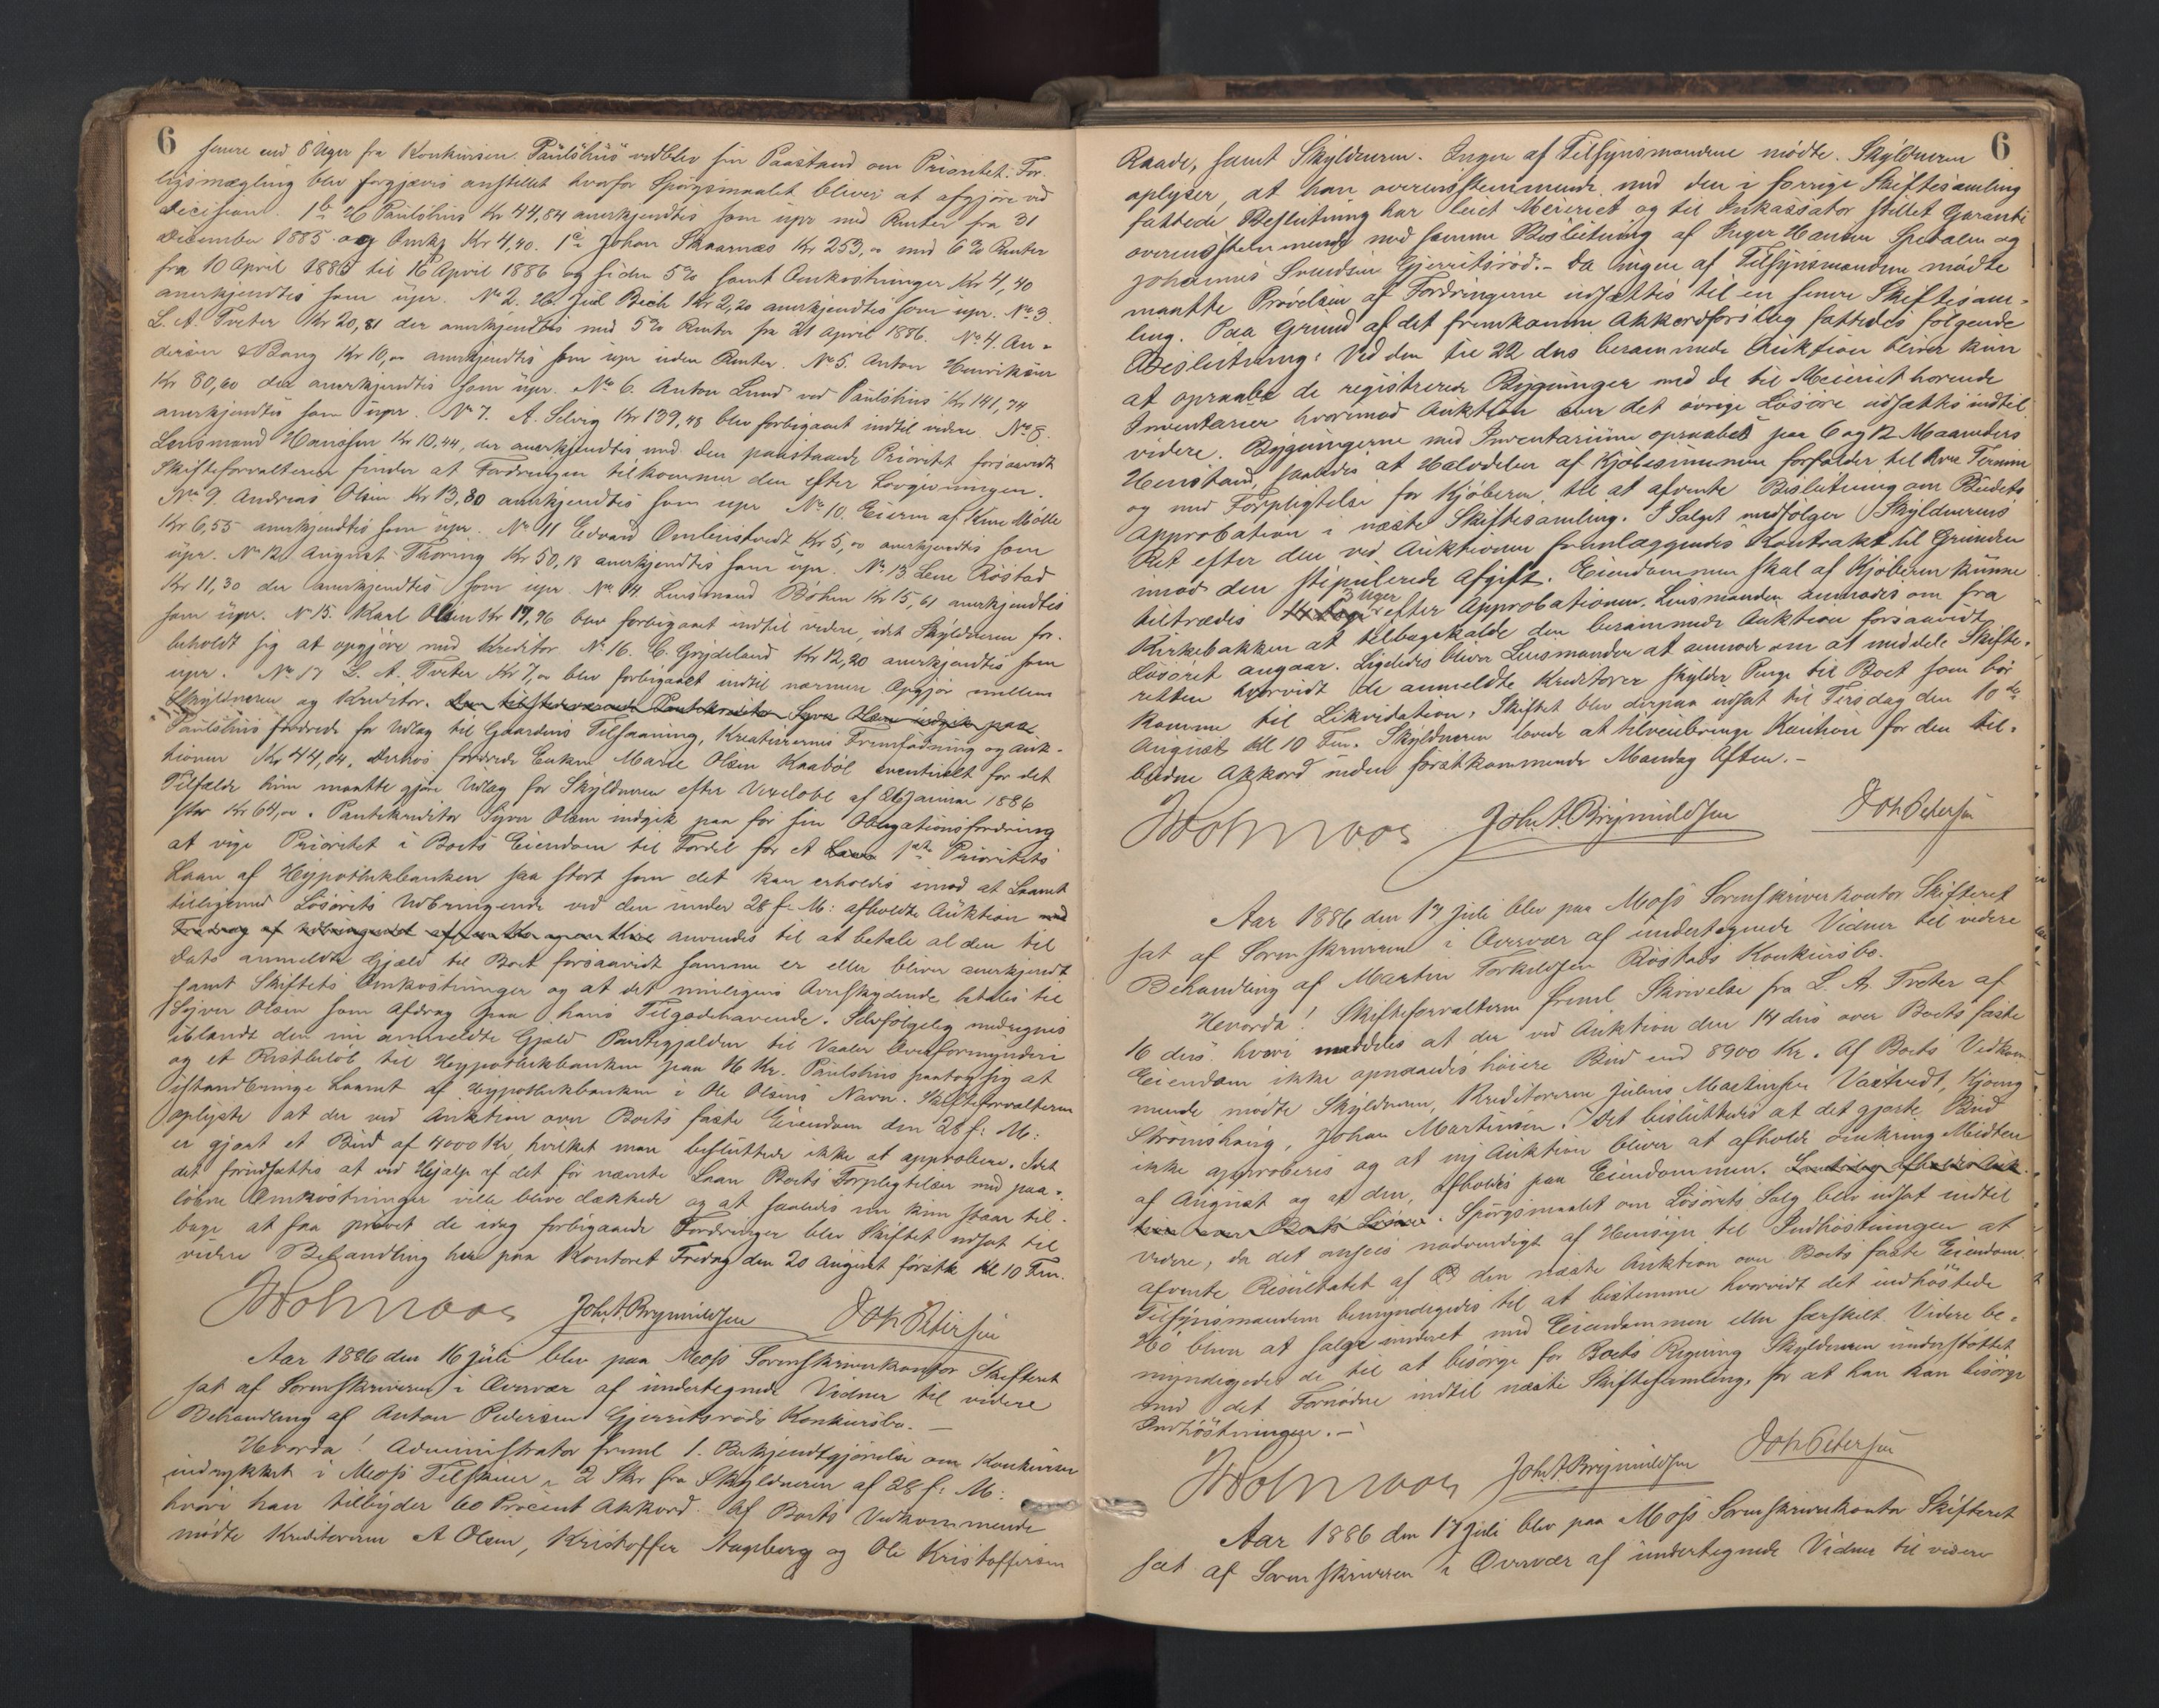 6
senere end 8 Uger fra Konkursen. Paulshus vedblev sin Paastand om Prioritet. For-
ligsmægling blev forgjæves anstillet hvorfor Spørgsmaalet bliver at afgjøre ved
Decision. 1b H Paulshus Kr 44,84 anerkjendtes som upr med Renter fra 31
December 1885 og Omkg Kr 4,40. 1c Johan Skaarnæs Kr 253,00 med 6% Renter
fra 10 April 1885 til 16 April 1886 og siden 5% samt Omkostninger Kr 4,40
anerkjendtes som upr. No 2. Jul Bech Kr 2,20 anerkjendtes som upr. No 3.
L. A. Tveter Kr 20,81 der anerkjendtes med 5% Renter fra 21 April 1886. No 4. An-
dersen & Bang Kr 10,00 anerkjendtes som upr uden Renter. No 5. Anton Henriksen
Kr 80,60 der anerkjendtes som upr. No 6. Anton Lund ved Paulshus Kr 141,74
anerkjendtes som upr. No 7. A. Selvig Kr 139,48 blev forbigaaet indtil videre. No 8.
Lensmand Hansen Kr 10,44, der anerkjendtes med den paastaaede Prioritet forsaavidt
Skifteforvalteren finder at Fordringen tilkommer den efter Lovgivningen.
No 9 Andreas Olsen Kr 13,80 anerkjendtes som upr No 10. Eieren af Kure Mølle
Kr 6,55 anerkjendtes som upr. No 11 Edvard Ombustvedt Kr 5,00 anerkjendtes som
upr. No 12 August Thoring Kr 50,18 anerkjendtes som upr. No 13 Lene Røstad
Kr 11,30 der anerkjendtes som upr. No 14 Lensmand Bøhm Kr 15,61 anerkjendtes
som upr. No 15. Karl Olsen Kr 17,96 blev forbigaaet indtil videre, idet Skyldneren for-
beholdt sig at opgjøre med Kreditor. No 16. C. Grydeland Kr 12,20 anerkjendtes som
upr. No 17 L. A. Tveter Kr 7,00 blev forbigaaet indtil nærmere Opgjør mellem
Skyldneren og Kreditor. Den tilstedeværende Pantekreditor Syver Olsen indgik paa
Paulshus fordrede for Udlæg til Gaardens Tilsaaning, Kreaturernes Fremfødning og Auk-
tionen Kr 44,04. Derhos fordrede Enken Marie Olsen Kaabøl eventuelt for det
Tilfælde hun maatte gjøre Udlæg for Skyldneren efter Vexelobl af Januar 1886
stor Kr 64,00. Pantekreditor Syver Olsen indgik paa for sin Obligationsfordring
at vige Prioritet i Boets Eiendom til Fordel for et Laan 1ste Prioritets
Laan af Hypothekbanken saa stort som det kan erholdes imod at Laanet
tilligemed Løsørets Udbringende ved den under 28 f. M: afholdte Auktion med
Fradrag af anvendes til at betale al den til
Dato anmeldte Gjæld til Boet forsaavidt samme er eller bliver anerkjendt
samt Skiftets Omkostninger og at det muligens Overskydende betales til
Syver Olsen som Afdrag paa hans Tilgodehavende. Selvfølgelig medregnes
iblandt den nu anmeldte Gjæld Pantegjælden til Vaaler Overformynderi
og et Restbeløb til Hypothekbanken paa 16 Kr. Paulshus paatog sig at
istandbringe Laanet af Hypothekbanken i Ole Olsens Navn. Skifteforvalteren
oplyste at der ved Auktion over Boets faste Eiendom den 28 f. M:
er gjort et Bud af 4000 Kr, hvilket man besluttede ikke at approbere. Idet
det forudsættes at ved Hjælp af det før nævnte Laan Boets Forpligtelser med paa-
løbne Omkostninger ville blive dækkede og at saaledes nu kun staar til-
bage at faa prøvet de idag forbigaaede Fordringer blev Skiftet udsat til
videre Behandling her paa Kontoret Fredag den 20 August førstk Kl 10 Fm.
Joh. A. Brynildsen Joh Petersen
Aar 1886 den 16 Juli blev paa Moss Sorenskriverkontor Skifteret
sat af Sorenskriveren i Overvær af undertegnede Vidner til videre
Behandling af Anton Pedersen Gjerritsrøds Konkursbo. —
Hvorda! Administrator freml 1. Bekjendtgjørelse om Konkursen
indrykket i Moss Tilskuer 2 Skr fra Skyldneren af 28 f. M:
hvori han tilbyder 60 Procent Akkord. Af Boets Vedkommende
mødte Kreditorerne A Olsen, Kristoffer Augberg og Ole Kristoffersen
6
Raade, samt Skyldneren. Ingen af Tilsynsmændene mødte. Skyldneren
oplyser, at han overensstemmende med den i forrige Skiftesamling
fattede Beslutning har leiet Meieriet og til Inkassator stillet Garanti
overensstemmende med samme Beslutning af Inger Hansen Spetalen og
Johannes Svendsen Gjerritsrød. — Da ingen af Tilsynsmændene mødte
maatte Prøvelsen af Fordringerne udsættes til en senere Skiftesam-
ling. Paa Grund af det fremkomne Akkordforslag fattedes følgende
Beslutning: Ved den til 22 ds berammede Auktion bliver kun
at opraabe de registrerede Bygninger med de til Meieriet hørende
Inventarier hvorimod Auktion over det øvrige Løsøre udsættes indtil
videre. Bygningerne med Inventarium opraabes paa 6 og 12 Maaneders
Henstand, saaledes at Halvdelen af Kjøbesummen forfalder til hver Termin
og med Forpligtelse for Kjøberen til at afvente Beslutning om Budets
Approbation i næste Skiftesamling. I Salget medfølger Skyldnerens
Ret efter den ved Auktionen fremlæggendes Kontrakt til Grunden
imod den stipulerede Afgift. Eiendommen skal af Kjøberen kunne
tiltrædes 14 Dage 3 Uger efter Approbationen. Lensmanden anmodes om fra
Kirkebakken at tilbagekalde den berammede Auktion forsaavidt
Løsøret angaar. Ligeledes bliver Lensmanden at anmode om at meddele Skifte-
retten hvorvidt de anmeldte Kreditorer skylder Penge til Boet som bør
komme til Likvidation. Skiftet blev derpaa udsat til Tirsdag den 10de
August Kl 10 Fm. Skyldneren lovede at tilveiebringe Kaution for den til-
budne Akkord inden førstkommende Mandag Aften. —
Joh. A. Brynildsen Joh Petersen
Aar 1886 den 17 Juli blev paa Moss Sorenskriverkontor Skifteret
sat af Sorenskriveren i Overvær af undertegnede Vidner til videre
Behandling af Martin Torkildsen Røstads Konkursbo.
Hvorda! Skifteforvalteren freml Skrivelse fra L. A. Tveter af
16 ds. hvori meddeles at der ved Auktion den 14 ds over Boets faste
Eiendom ikke opnaaedes høiere Bud end 8900 Kr. Af Boets Vedkom-
mende mødte Skyldneren, Kreditorerne Julius Martinsen Vartvedt,
Strømshaug, Johan Martinsen. Det besluttedes at det gjorte Bud
ikke approberes og at ny Auktion bliver at afholde omkring Midten
af August og at den afholdes paa Eiendommen.
Boets Løsøre. Spørgsmaalet om Løsørets Salg blev udsat indtil
videre, da det ansees nødvendigt af Hensyn til Indhøstningen at
afvente Resultatet af den næste Auktion over Boets faste Eiendom.
Tilsynsmændene bemyndigedes til at bestemme hvorvidt det indhøstede
Hø bliver at sælge underet med Eiendommen eller særskilt. Videre be-
myndigedes de til at besørge for Boets Regning Skyldneren understøttet
med det Fornødne indtil næste Skiftesamling, for at han kan besørge
Indhøstningen. —
Joh. A. Brynildsen Joh Petersen
Aar 1886 den 17 Juli blev paa Moss Sorenskriverkontor Skifteret
sat af Sorenskriveren i Overvær af undertegnede Vidner til videre